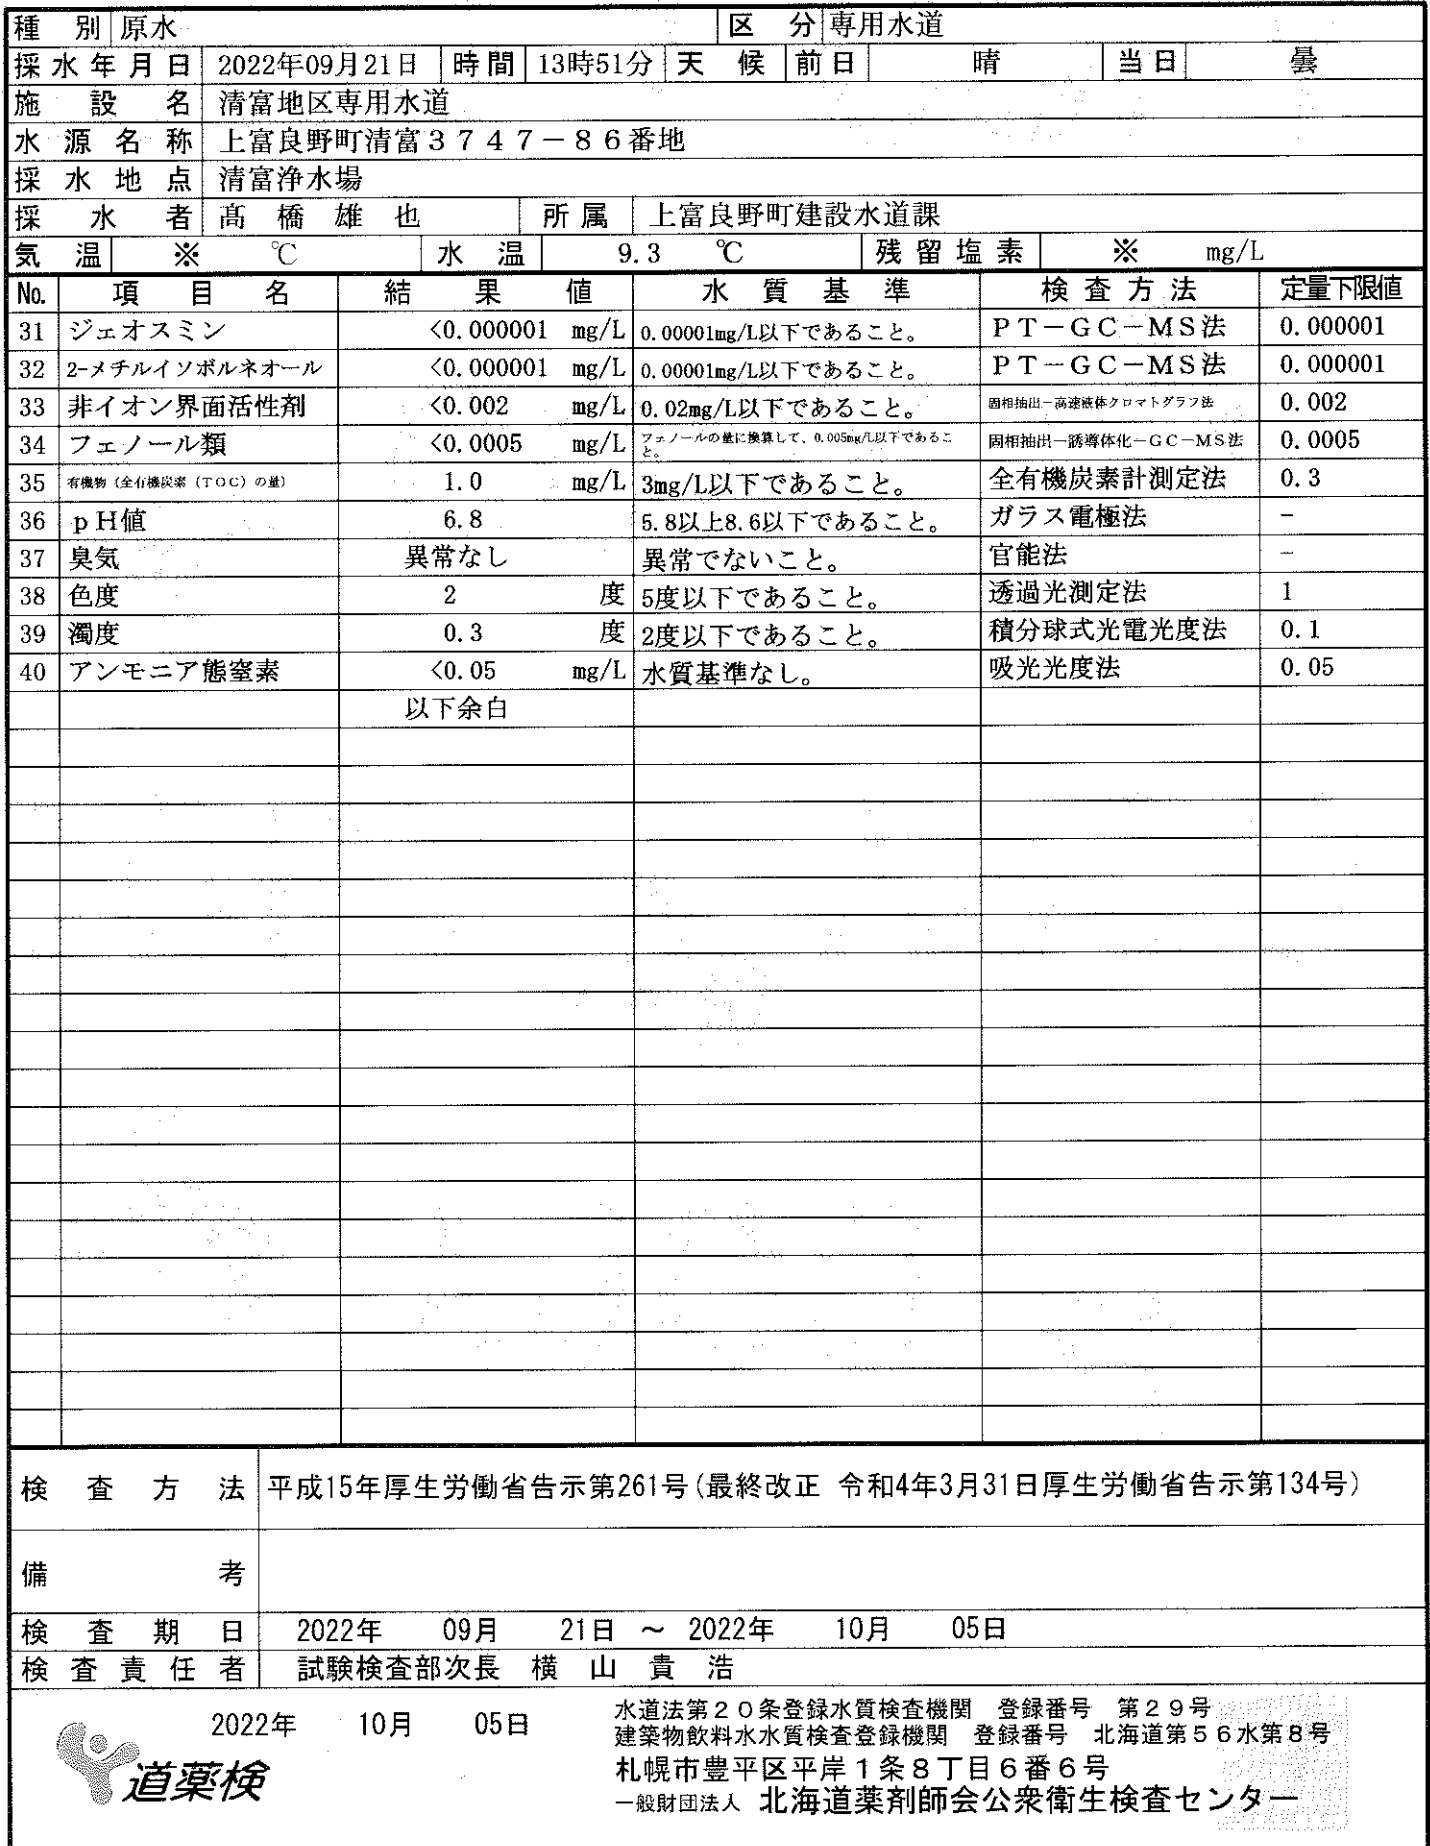 種別 原水 区分 専用水道
採水年月日 2022年09月21日 時間 13時51分 天候 前日 晴 当日 曇
施設名 清富地区専用水道
水源名称 上富良野町清富3747-86番地
採水地点 清富浄水場
採水者 髙橋雄也 所属 上富良野町建設水道課
気温 ※ ℃ 水温 9.3 ℃ 残留塩素 ※ mg/L
No. 項目名 結果値 水質基準 検査方法 定量下限値
31 ジェオスミン <0.000001 mg/L 0.00001mg/L以下であること。 PT-GC-MS法 0.000001
32 2-メチルイソボルネオール <0.000001 mg/L 0.00001mg/L以下であること。 PT-GC-MS法 0.000001
33 非イオン界面活性剤 <0.002 mg/L 0.02mg/L以下であること。 固相抽出-高速液体クロマトグラフ法 0.002
34 フェノール類 <0.0005 mg/L フェノールの量に換算して、0.005mg/L以下であること。 固相抽出-誘導体化-GC-MS法 0.0005
35 有機物(全有機炭素(TOC)の量) 1.0 mg/L 3mg/L以下であること。 全有機炭素計測定法 0.3
36 pH値 6.8 5.8以上8.6以下であること。 ガラス電極法 -
37 臭気 異常なし 異常でないこと。 官能法 -
38 色度 2 度 5度以下であること。 透過光測定法 1
39 濁度 0.3 度 2度以下であること。 積分球式光電光度法 0.1
40 アンモニア態窒素 <0.05 mg/L 水質基準なし。 吸光光度法 0.05
以下余白
検査方法 平成15年厚生労働省告示第261号(最終改正 令和4年3月31日厚生労働省告示第134号)
備考
検査期日 2022年 09月 21日 ~ 2022年 10月 05日
検査責任者 試験検査部次長 横山貴浩
2022年 10月 05日
水道法第20条登録水質検査機関 登録番号 第29号
建築物飲料水水質検査登録機関 登録番号 北海道第56水第8号
札幌市豊平区平岸1条8丁目6番6号
一般財団法人 北海道薬剤師会公衆衛生検査センター
道薬検